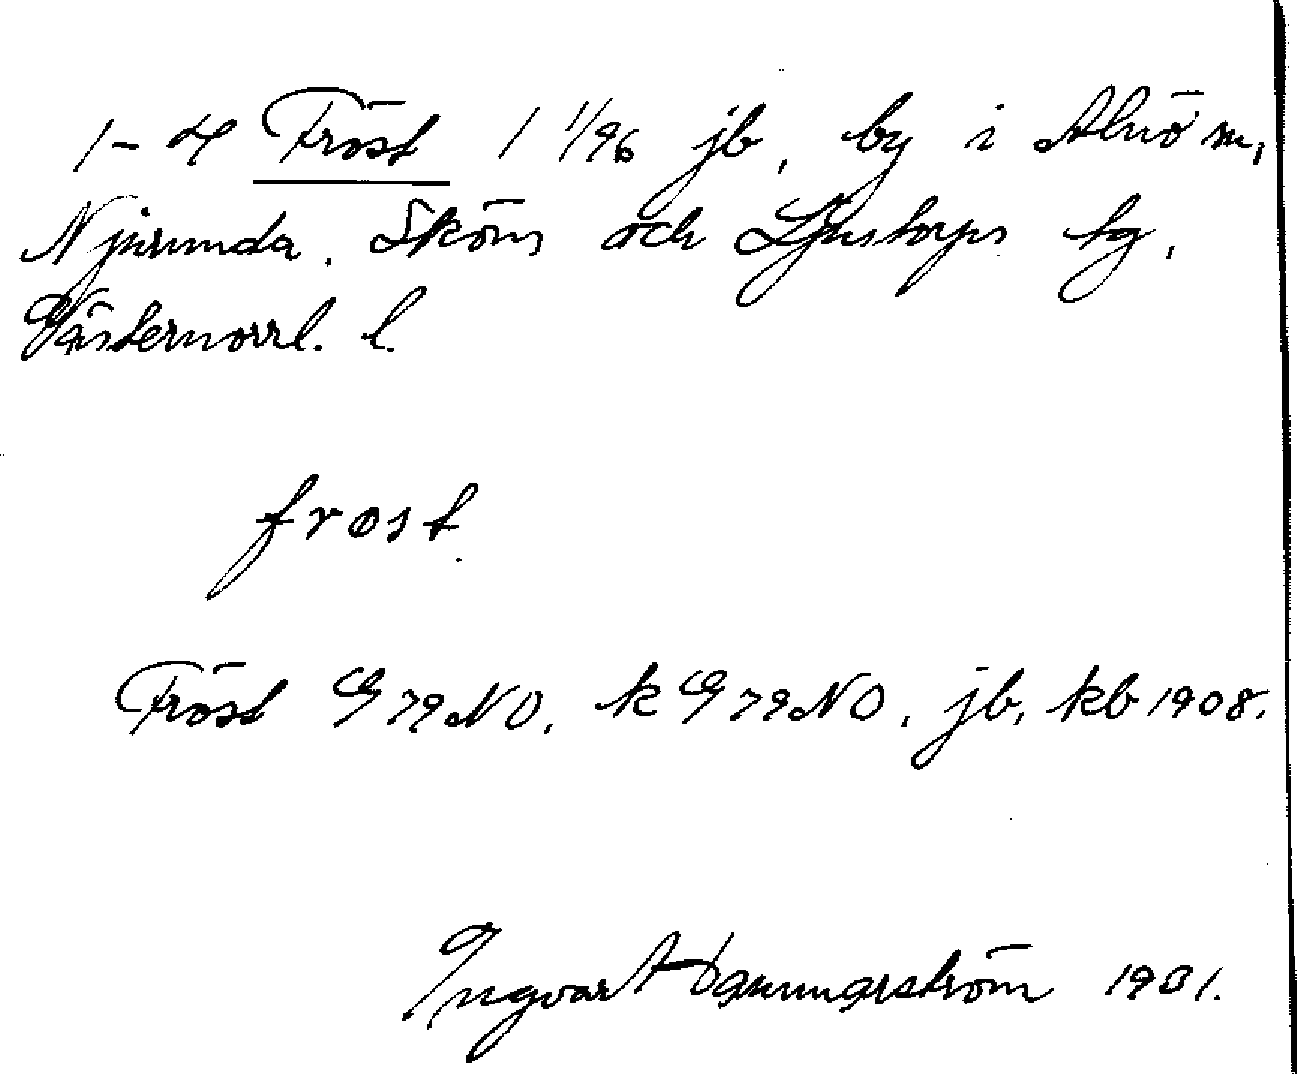 1-4 Fröst 1 1/96 jb, by i Alnö sn,
Njurunda, Sköns och Ljustorps tg,
Västernorrl. l.
frost
Fröst G79NO, k G79NO, jb, kb 1908.
Ingvar 1901.